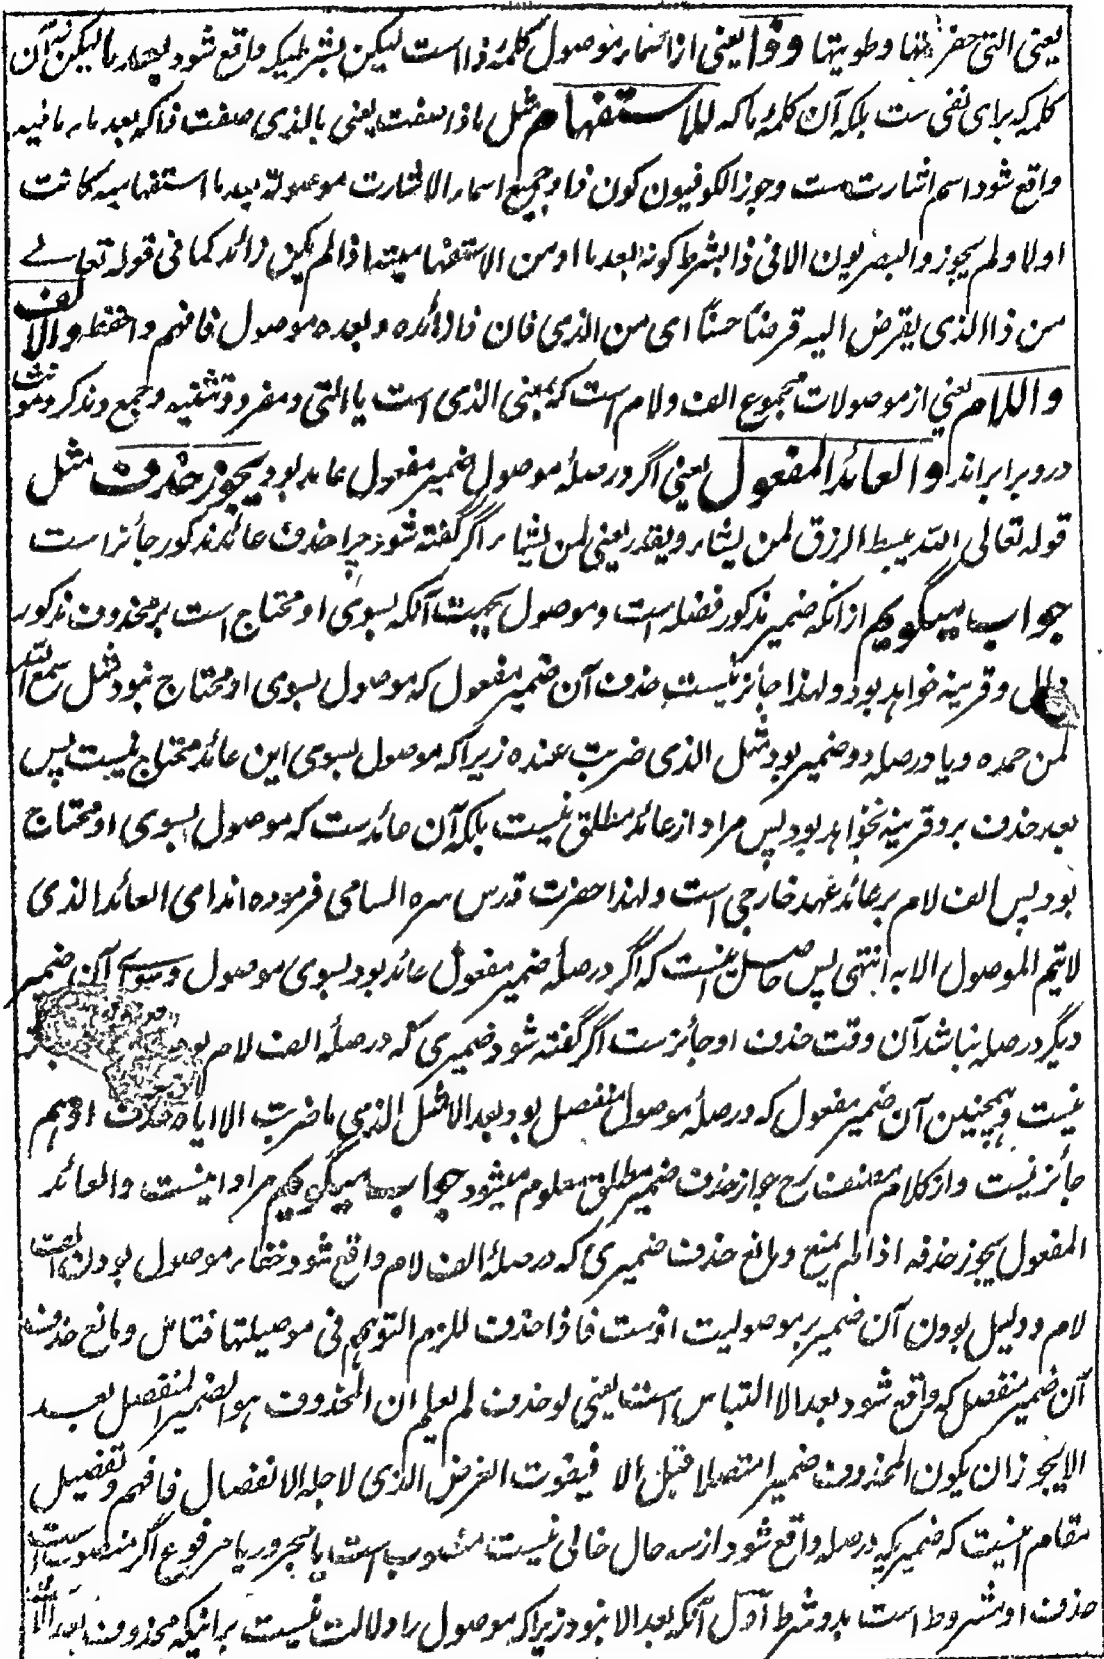 یعنی التی حفرتها وطویتها وذا یعنی از اسماء موصول کلمهٔ ذا است لیکن بشرطیکه واقع شود بعد ما لیکن نه آن
کلمه که برای نفی ست بلکه آن کلمهٔ ما که للاستفهام مثل ماذا صفت یعنی بالذی صفت فاکه بعد ما نافیه
واقع شود اسم اشارت ست وجوز الکوفیون کون ذا وجمیع اسماء الاشارت موصولة بعد ما استفهامیه کانت
اولا ولم یجوز والبصریون الا فی ذا بشرط کونه بعد ما او من الاستفهامیته اذا لم یکن زائد کما فی قوله تعالے
من ذا الذی یقرض الیه قرضاً حسناً ای من الذی فان ذا زائده وبعده موصول فافهم واحفظ والالف
واللام یعنی از موصولات مجموع الف ولام است که بمعنی الذی است یا التی ومفرد وتثنیه وجمع ومذکر ومونث
درو برابراند والعائد المفعول یعنی اگر در صلهٔ موصول ضمیر مفعول عاید بود یجوز حذفه مثل
قوله تعالی الله یبسط الرزق لمن یشاء ویقدر یعنی لمن یشاء اگر گفته شود چرا حذف عائد مذکور جائز است
جواب میگویم از انکه ضمیر مذکور فضله است وموصول بجهت آنکه بسوی او محتاج است بر محذوف مذکور
دال وقرینه خواهد بود ولهذا جائز نیست حذف آن ضمیر مفعول که موصول بسوی او محتاج نبود مثل سمع الله
لمن حمده ویا در صله دو ضمیر بود مثل الذی ضربت عنده زیرا که موصول بسوی این عائد محتاج نیست پس
بعد حذف برو قرینه نخواهد بود پس مراد از عائد مطلق نیست بلکه آن عائد ست که موصول بسوی او محتاج
بود پس الف لام بر عائد عهد خارجی است ولهذا حضرت قدس سره السامی فرموده اند ای العائد الذی
لا یتم الموصول الا به انتهی پس حاصل اینست که اگر در صله ضمیر مفعول عائد بود بسوی موصول وسوی آن ضمیر
دیگر در صله نباشد آن وقت حذف او جائز ست اگر گفته شود ضمیری که در صلهٔ الف لام بود
نیست وهمچنین آن ضمیر مفعول که در صلهٔ موصول منفصل بود بعد الا مثل الذی ما ضربت الا ایاه حذف او هم
جائز نیست واز کلام مصنف رح جواز حذف ضمیر مطلق معلوم میشود جواب میگویم مراد اینست والعائد
المفعول یجوز حذفه اذا لم یمنع ومانع حذف ضمیری که در صلهٔ الف لام واقع شود خفاء موصول بودن الف
لام ودلیل بودن آن ضمیر بر موصولیت اوست فاذا حذف للزم التوهم فی موصیلتها فتامل ومانع حذف
آن ضمیر منفصل که واقع شود بعد الا التباس است یعنی لو حذف لم یعلم ان المحذوف هو الضمیر المنفصل بعد
الا یجوز ان یکون المحذوف ضمیرا متصلا قبل الا فیفوت الغرض الذی لاجله الانفصال فافهم وتفصیل
مقام اینست که ضمیریکه در صله واقع شود از سه حال خالی نیست منصوب است یا مجرور یا مرفوع اگر منصوب است
حذف او مشروط است بدو شرط اول آنکه بعد الا نبود زیرا که موصول را دلالت نیست بر اینکه محذوف بعد الا